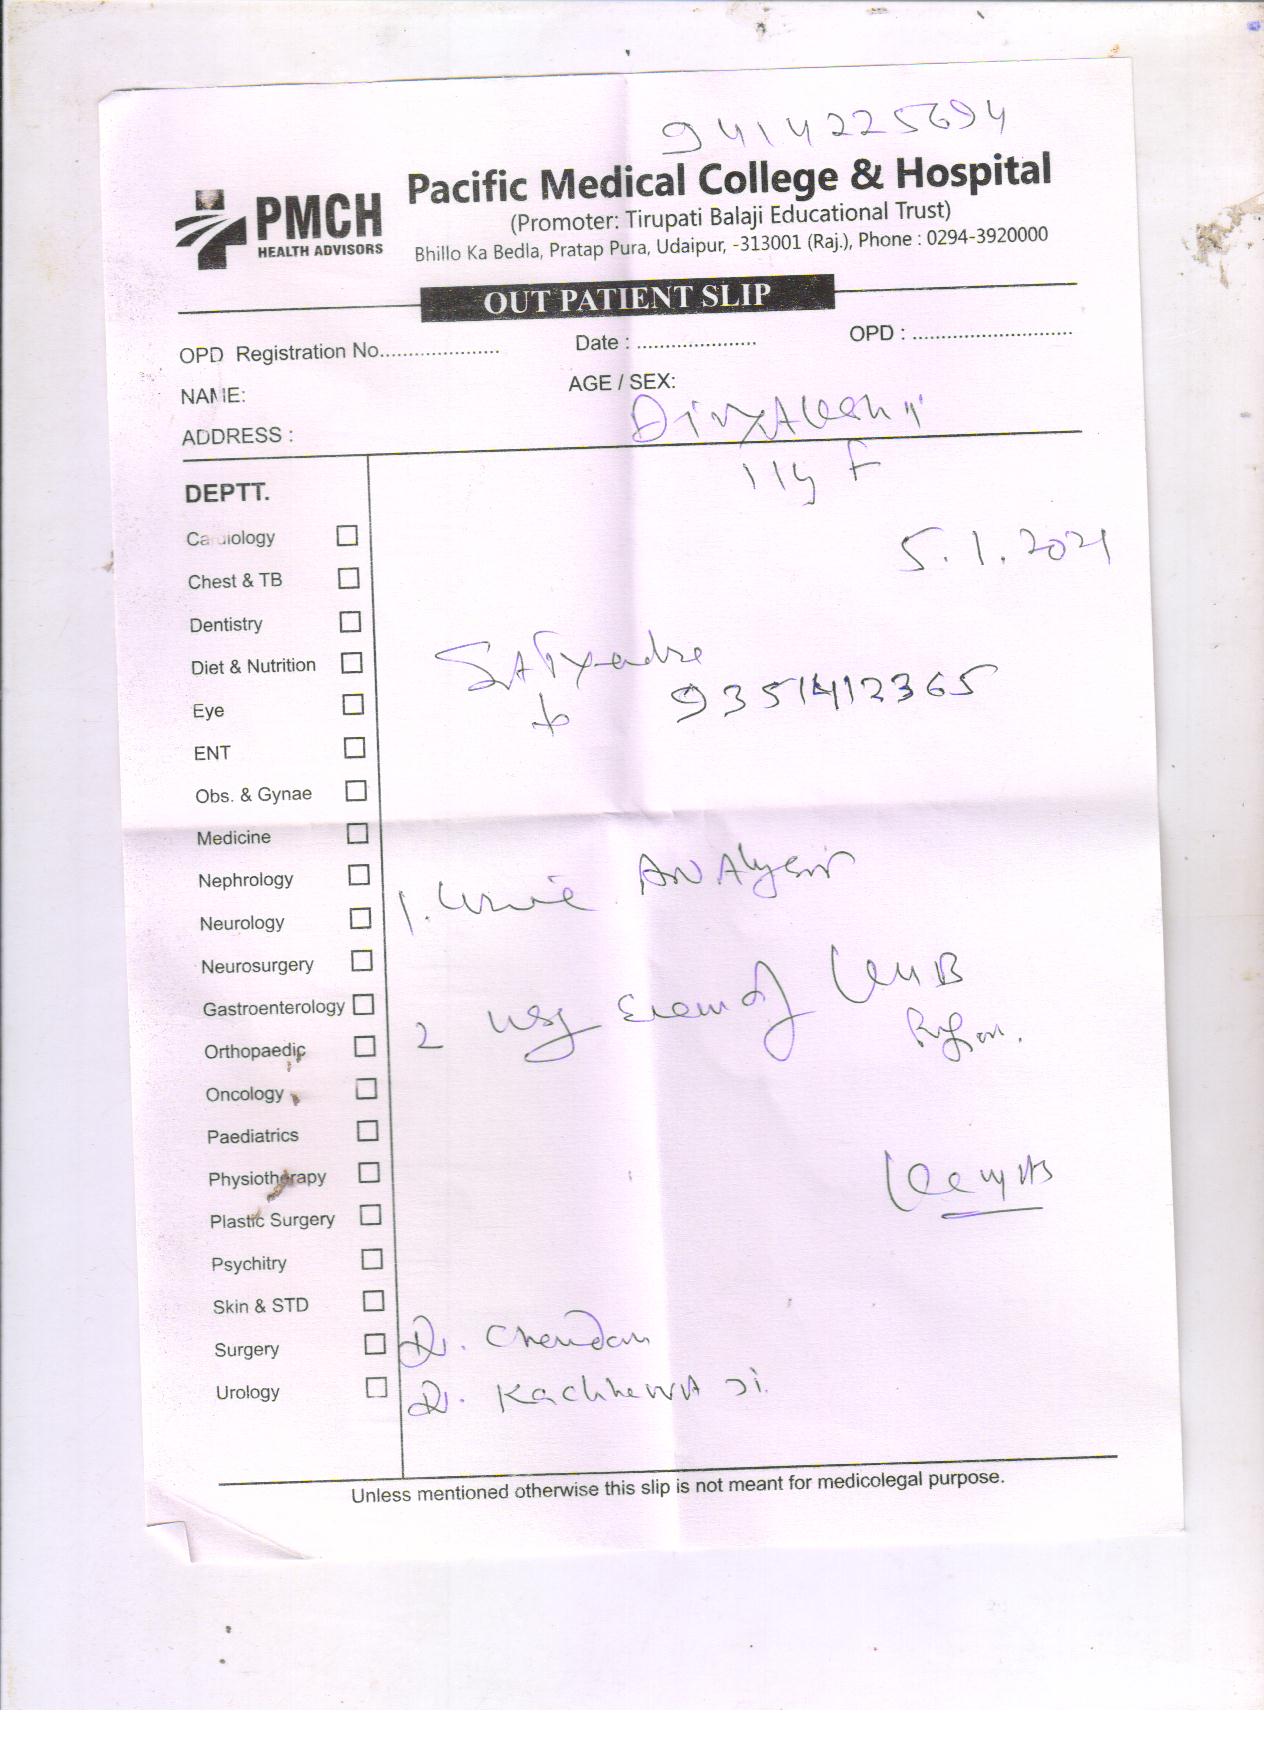 9414225694
PMCH
HEALTH ADVISORS
Pacific Medical College & Hospital
(Promoter: Tirupati Balaji Educational Trust)
Bhillo Ka Bedla, Pratap Pura, Udaipur, -313001 (Raj.), Phone : 0294-3920000
OUT PATIENT SLIP
OPD Registration No.................... Date : ..................... OPD : ...........................
NAME: AGE / SEX:
ADDRESS :
11y F
5.1.2021
9351412365
DEPTT.
Cardiology
Chest & TB
Dentistry
Diet & Nutrition
Eye
ENT
Obs. & Gynae
Medicine
Nephrology
Neurology
Neurosurgery
Gastroenterology
Orthopaedic
Oncology
Paediatrics
Physiotherapy
Plastic Surgery
Psychitry
Skin & STD
Surgery
Urology
1. Urine Analysis
2 USG Exam of KUB
Region.
Dr. Chandan
Dr. Kachhewa Ji.
Unless mentioned otherwise this slip is not meant for medicolegal purpose.